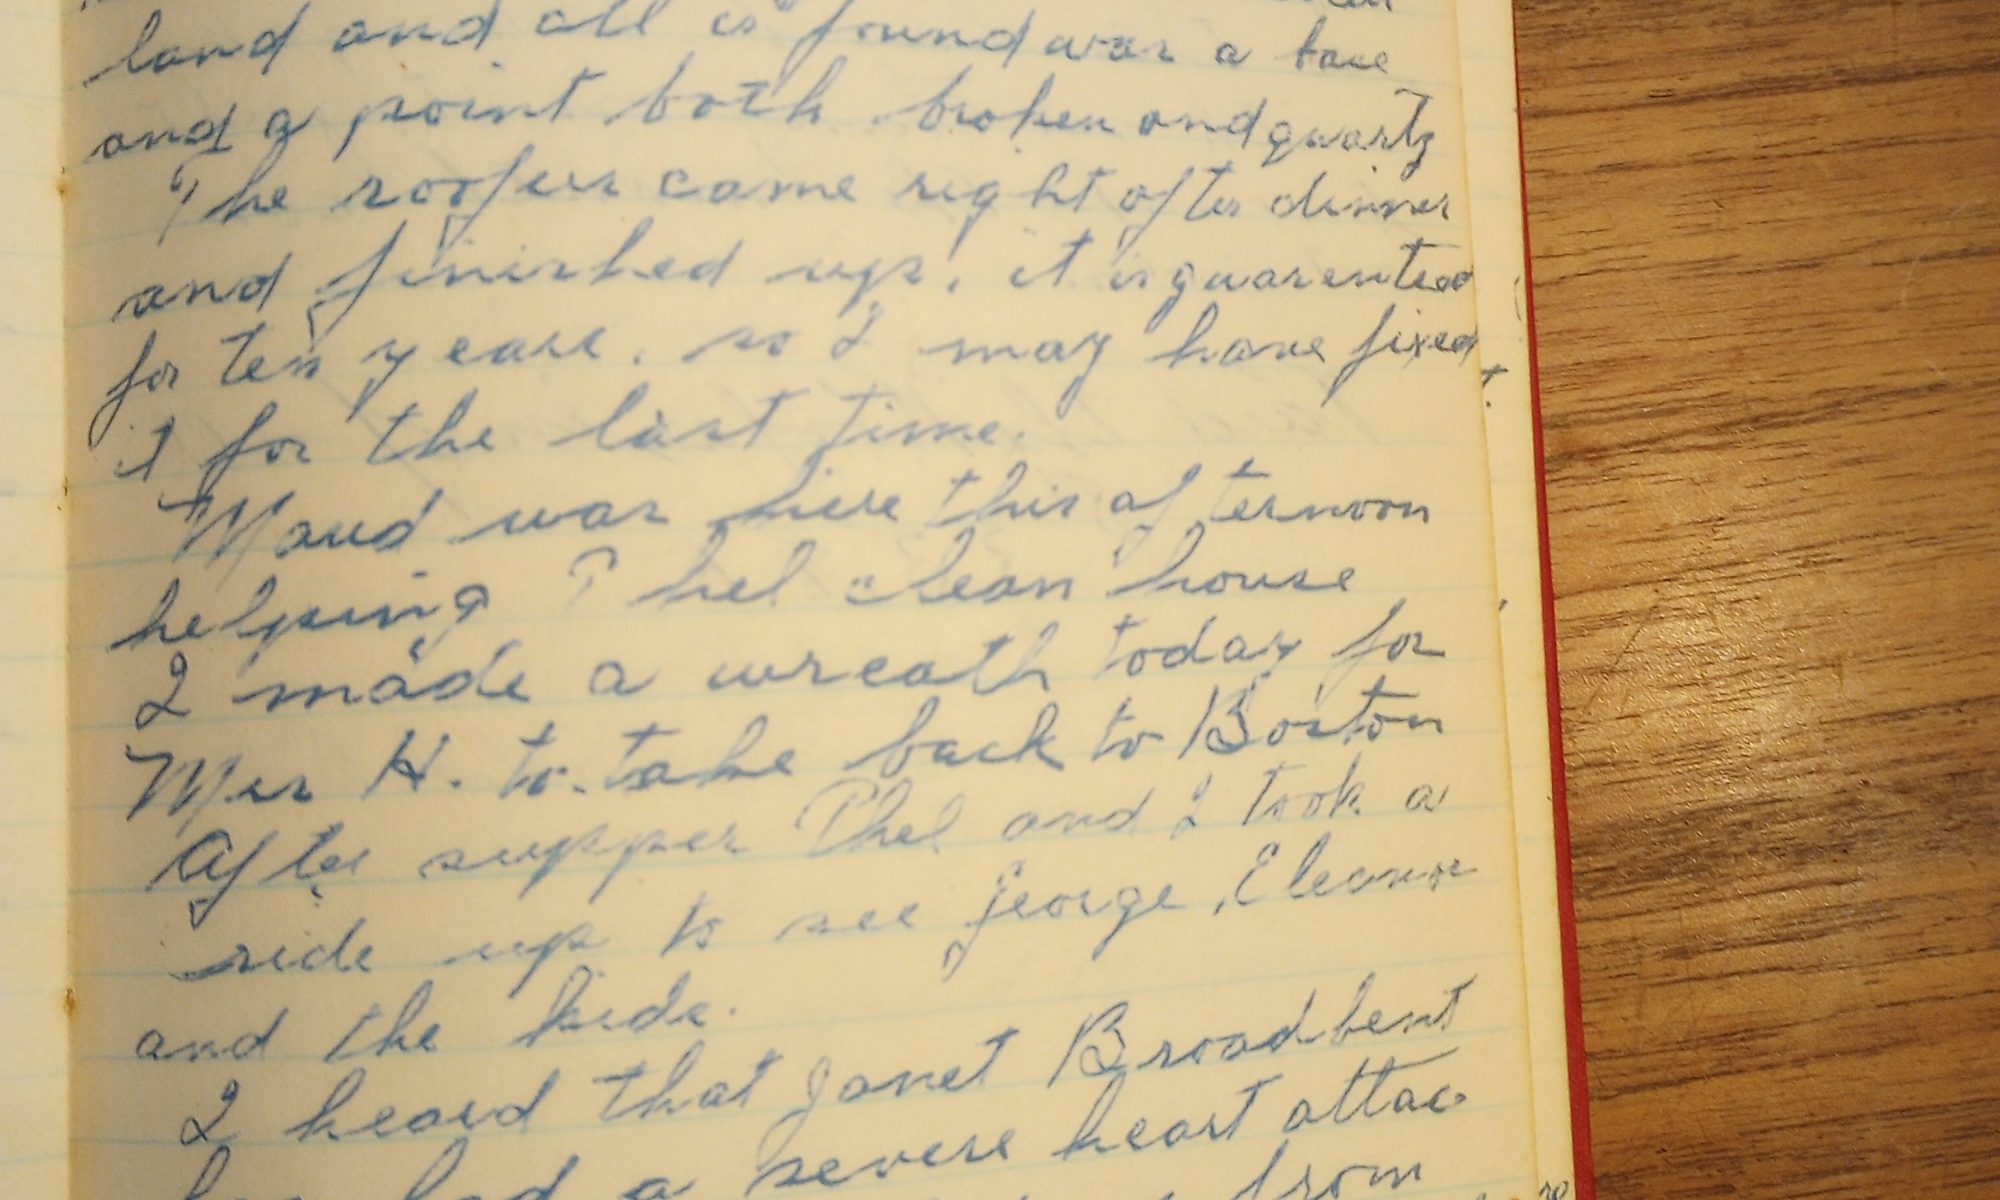 land and all is found was a base
and a point both broken and quartz
The roofers came right after dinner
and finished up, it is guarenteed
for ten years. so I may have fixed
it for the last time.
Maud was here this afternoon
helping Phel clean house
I made a wreath today for
Mrs H. to take back to Boston
After supper Phel and I took a
ride up to see George, Eleanor
and the kids.
I heard that Janet Broadbent
has had a severe heart attac
from